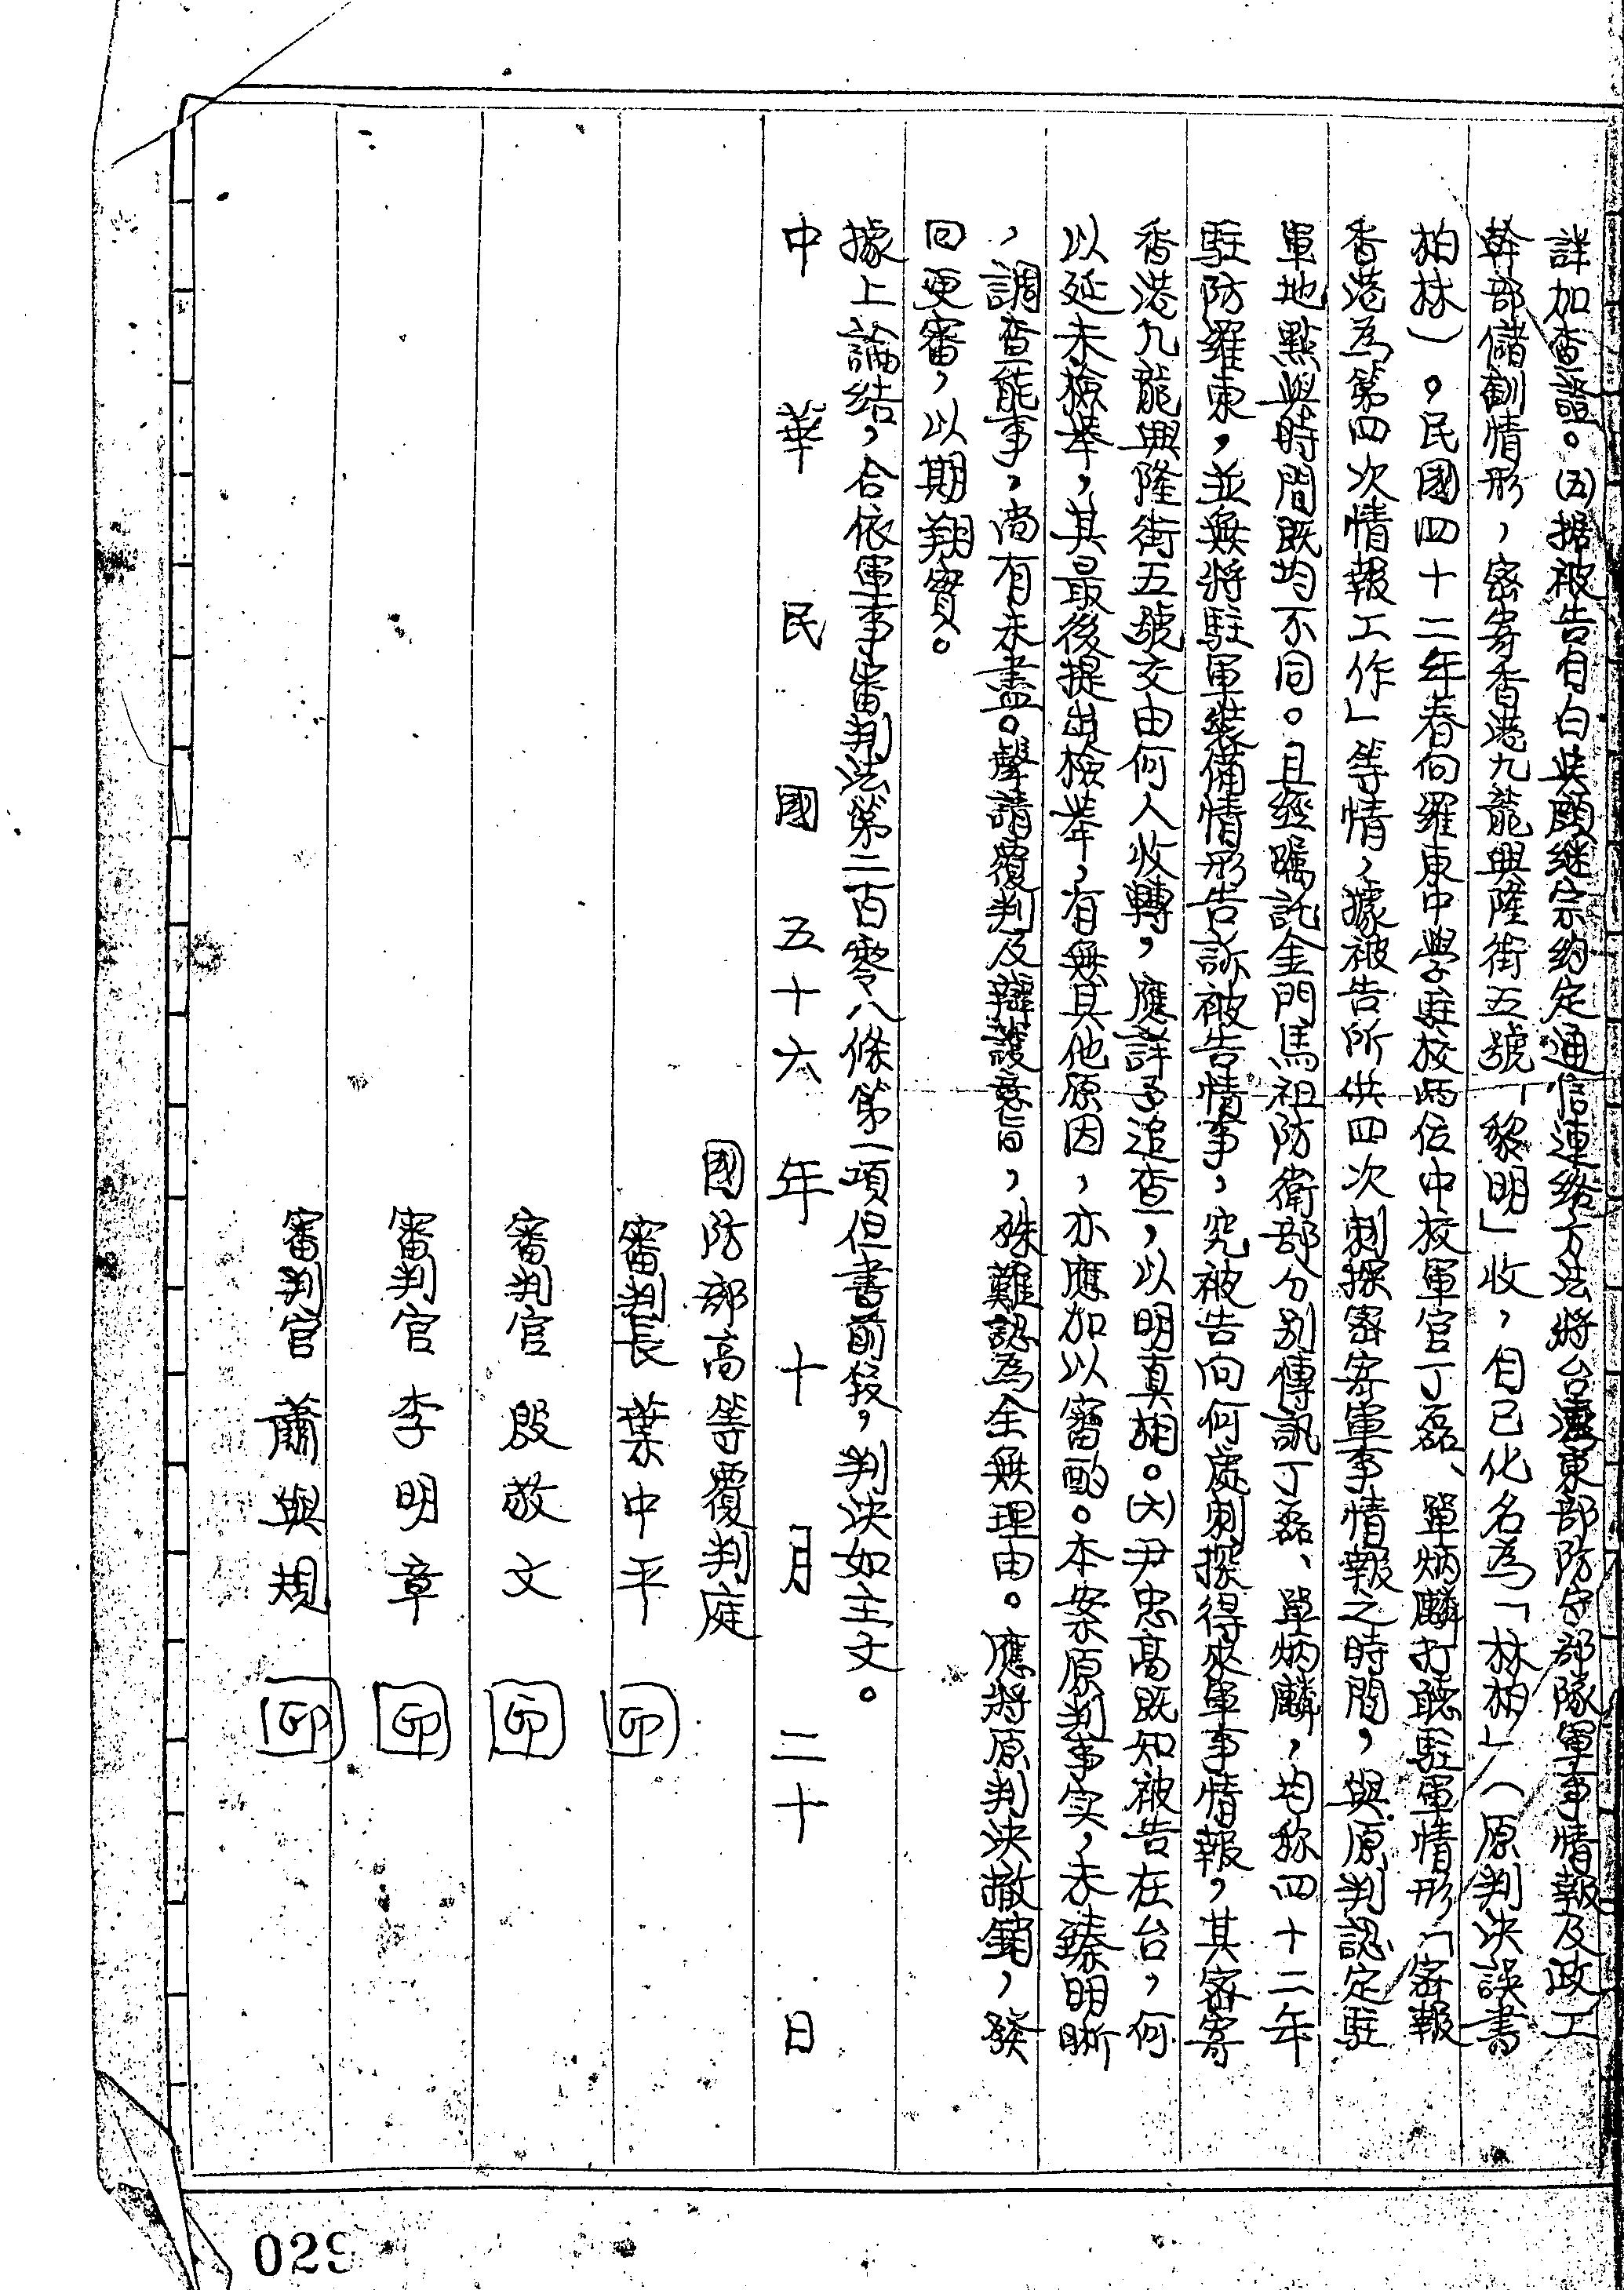 詳加查證。㈤據被告自白與顧继宗約定通信連络方法將台灣東部防守部隊軍事情報及政工
幹部儲訓情形，密寄香港九龍興隆街五號「黎明」收，自己化名為「林柏」（原判决誤書
柏林）。民國四十二年春向羅東中學駐校兩位中校軍官丁磊、單炳麟打聽駐軍情形「密報
香港為第四次情報工作」等情，據被告所供四次刺探密寄軍事情報之時間，與原判認定駐
軍地點與時間既均不同。且經囑託金門馬祖防衛部分別傳訊丁磊、單炳麟，均称四十二年
駐防羅東，並無將駐軍裝備情形告訴被告情事，究被告向何處刺探得來軍事情報，其密寄
香港九龍興隆街五號交由何人收轉，應詳予追查，以明真相。㈥尹忠高既知被告在台，何
以延未檢舉，其最後提出檢举，有無其他原因，亦應加以審酌。本案原判事实，未臻明晰
，調查能事，尚有未盡。聲請覆判及辯護意旨，殊難認為全無理由。應將原判决撤銷，發
回更審，以期翔實。
據上論结，合依軍事審判法第二百零八條第一項但書前段，判决如主文。
中華民國五十六年十月二十日
國防部高等覆判庭
審判長葉中平 印
審判官殷敬文 印
審判官李明章 印
審判官蕭與規 印
029